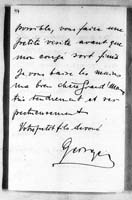 possible, vous faire une
petite visite avant que
mon congé soit fini
Je vous baise les mains
ma bien chère Grand'Mère
très tendrement et res-
pectueusement
Votre petit fils dévoué
Georges